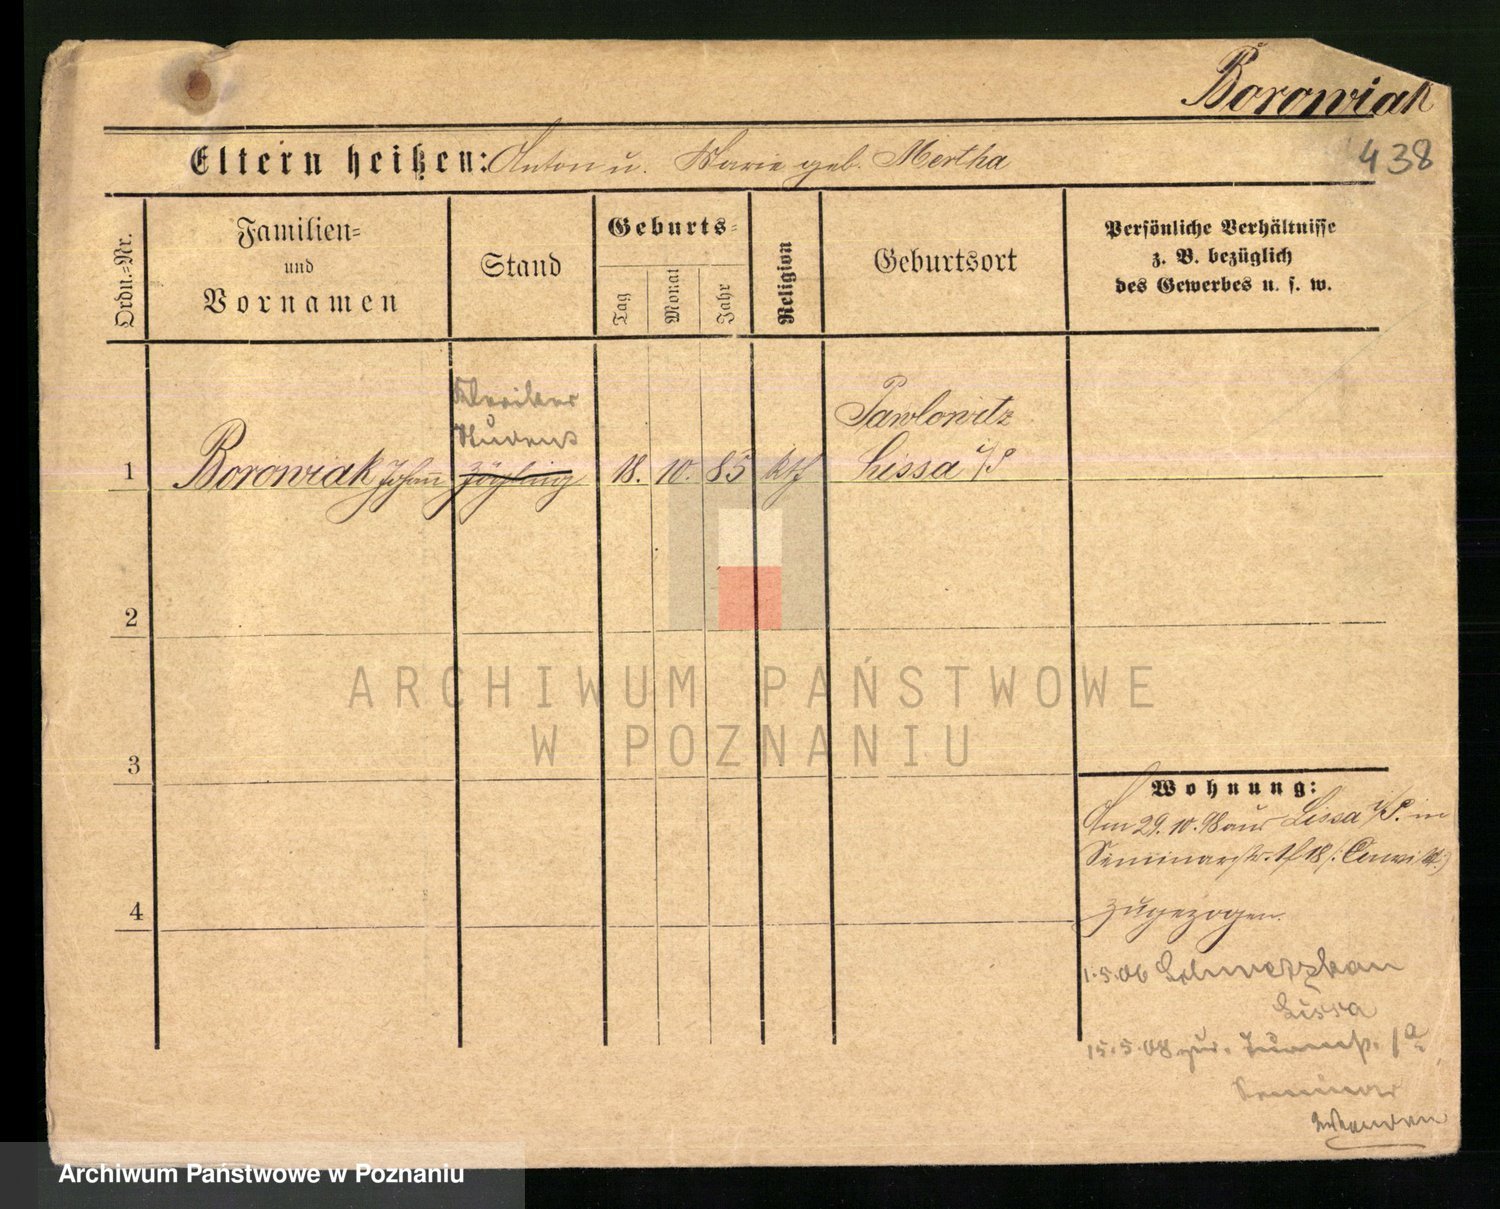 Borowiak
438
Eltern heißen: Anton u. Marie geb. Mertha
Ordn.=Nr.
Familien=
und
Vornamen
Stand
Geburts=
Tag
Monat
Jahr
Religion
Geburtsort
Persönliche Verhältnisse
z. B. bezüglich
des Gewerbes u. s. w.
Kleriker
Student
1 Borowiak Johann Zögling 18. 10. 85 kth
Pawlowitz
Lissa i/P
2
3
4
Wohnung:
Am 29. 10. 98 aus Lissa i/P. in
Seminarstr. 18
zugezogen.
1.5.06
Lissa
15.5.08 zur.
Seminar
ARCHIWUM PAŃSTWOWE
W POZNANIU
Archiwum Państwowe w Poznaniu